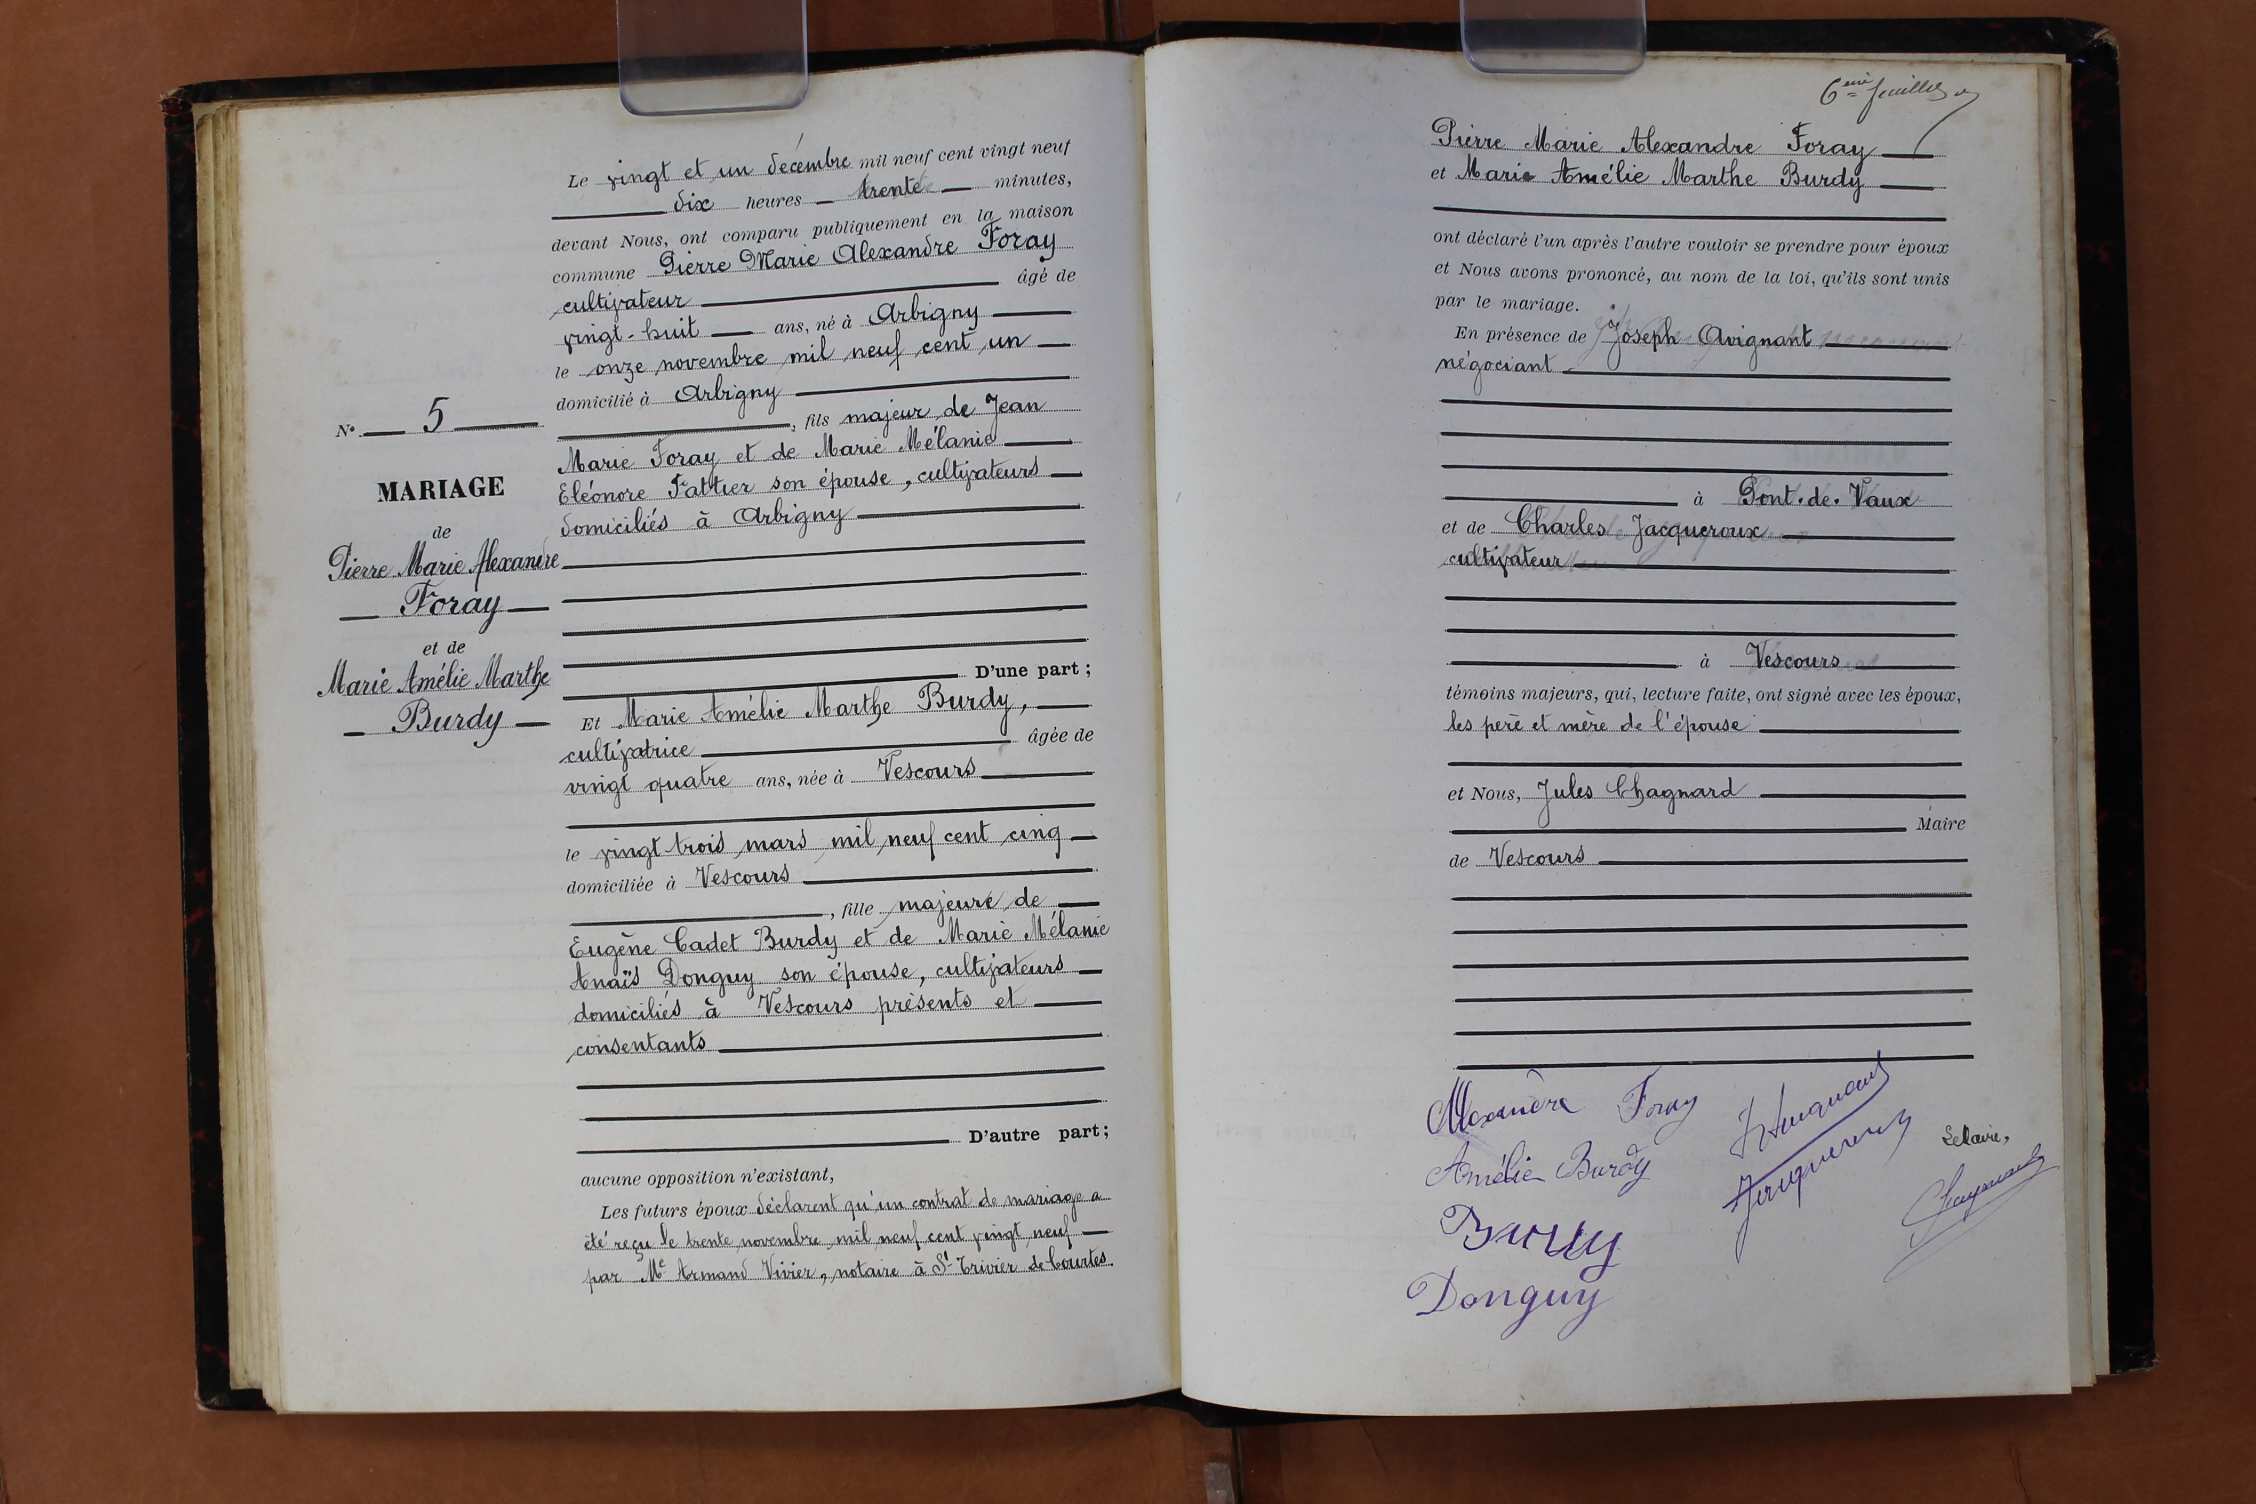 Le vingt et un décembre mil neuf cent vingt neuf
dix heures trente minutes,
devant Nous, ont comparu publiquement en la maison
commune Pierre Marie Alexandre Foray
cultivateur âgé de
vingt-huit ans, né à Arbigny
le onze novembre mil neuf cent un
domicilié à Arbigny
, fils majeur de Jean
Marie Foray et de Marie Mélanie
Eléonore Fattier son épouse, cultivateurs
domiciliés à Arbigny
D'une part ;
N° 5
MARIAGE
de
Pierre Marie Alexandre
Foray
et de
Marie Amélie Marthe
Burdy
Et Marie Amélie Marthe Burdy,
cultivatrice âgée de
vingt quatre ans, née à Vescours
le vingt trois mars mil neuf cent cinq
domiciliée à Vescours
, fille majeure de
Eugène Cadet Burdy et de Marie Mélanie
Anaïs Donguy son épouse, cultivateurs
domiciliés à Vescours présents et
consentants
D'autre part ;
aucune opposition n'existant,
Les futurs époux déclarent qu'un contrat de mariage a
été reçu le trente novembre mil neuf cent vingt neuf
par Me Armand Vivier, notaire à St Trivier de Courtes.
6eme feuillet
Pierre Marie Alexandre Foray
et Marie Amélie Marthe Burdy
ont déclaré l'un après l'autre vouloir se prendre pour époux
et Nous avons prononcé, au nom de la loi, qu'ils sont unis
par le mariage.
En présence de Joseph Avignant
négociant
à Pont-de-Vaux
et de Charles Jacqueroux
cultivateur
à Vescours
témoins majeurs, qui, lecture faite, ont signé avec les époux,
les père et mère de l'épouse
et Nous, Jules Chagnard
Maire
de Vescours
Alexandre Foray
Amélie Burdy
Burdy
Donguy
Jacqueroux
Le Maire,
Chagnard